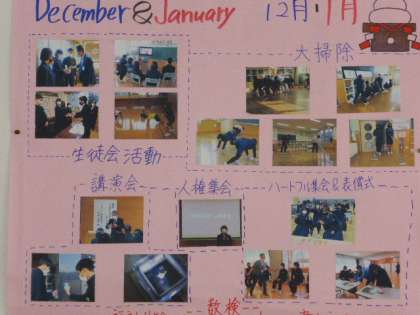 December & January 12月・1月
大掃除
生徒会活動
講演会 人権集会 ハートフル集会&表彰式
数検